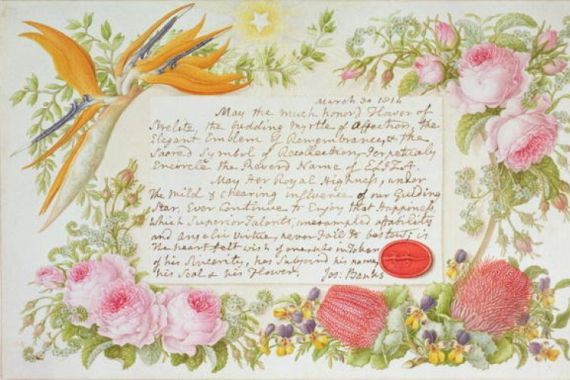 March 30 1814
May the much honord Flower of
Strelitz, the budding Myrtle of Affection, the
Elegant Emblem of Remembrance, & the
Sacred Symbol of Recollection, Perpetualy
Encircle the Name of ELIZA
May Her Royal Highness, under
the mild & chearing influence of our Guiding
Star, Ever Continue to Enjoy that Happiness
Which Superior Talents, unexampled affability
and Angelic Virtue, never Fail to bestow; is
the heart felt wish of one who in Token
of his Sincerity, has Subjoind his name,
his Seal & his Flower,
Jos: Banks